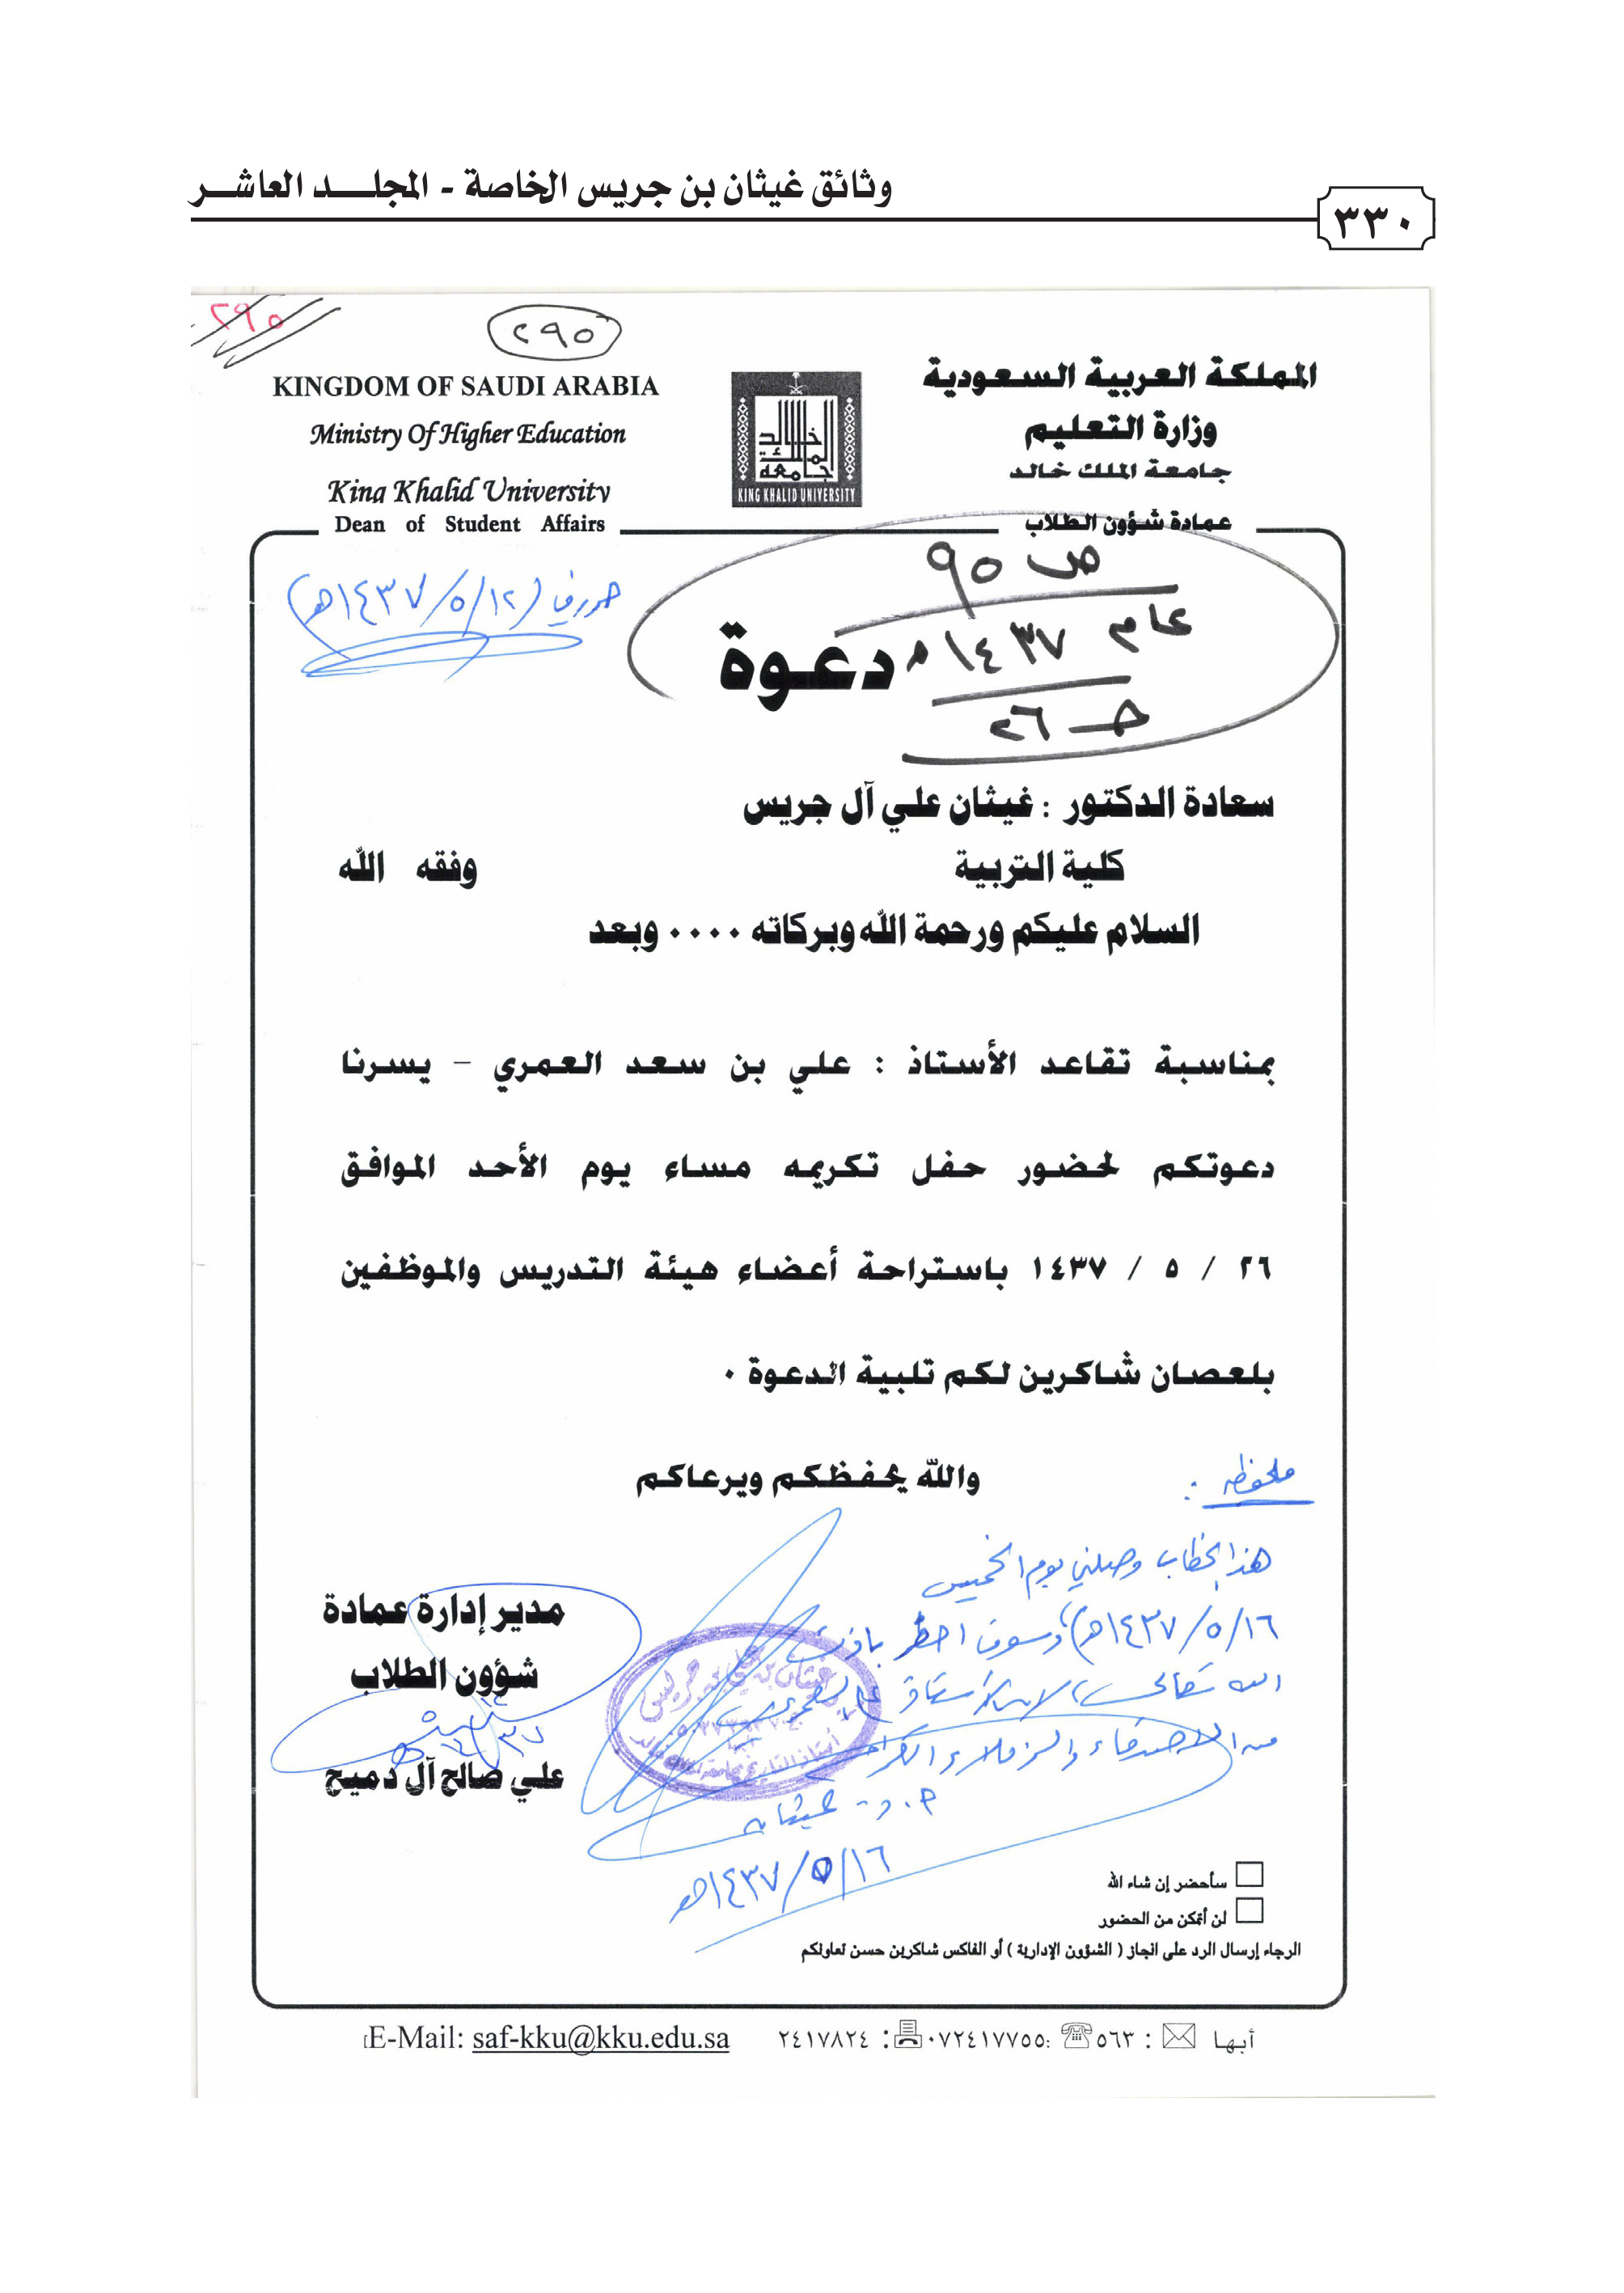 وثائق غيثان بن جريس الخاصة - المجلد العاشر
٣٣٠
٢٩٥
٢٩٥
KINGDOM OF SAUDI ARABIA
Ministry Of Higher Education
King Khalid University
Dean of Student Affairs
جامعة الملك خالد
KING KHALID UNIVERSITY
المملكة العربية السعودية
وزارة التعليم
جامعة الملك خالد
عمادة شؤون الطلاب
ص ٩٥
عام ١٤٣٧هـ
حـ ٢٦
صورفي (١٤٣٧/٥/١٢هـ)
دعوة
سعادة الدكتور : غيثان علي آل جريس
كلية التربية وفقه الله
السلام عليكم ورحمة الله وبركاته ٠٠٠٠ وبعد
بمناسبة تقاعد الأستاذ : علي بن سعد العمري - يسرنا
دعوتكم لحضور حفل تكريمه مساء يوم الأحد الموافق
٢٦ / ٥ / ١٤٣٧ باستراحة أعضاء هيئة التدريس والموظفين
بلعصان شاكرين لكم تلبية الدعوة ٠
والله يحفظكم ويرعاكم
ملحوظة :
هذا الخطاب وصلني يوم الخميس
١٤٣٧/٥/١٦هـ) وسوف احضر باذن
الله تعالى، الاستاذ علي العمري
من الاصدقاء والزملاء الكرام
أ.د. غيثان
١٤٣٧/٥/١٦هـ
غيثان بن علي بن جريس
مدير إدارة عمادة
شؤون الطلاب
علي صالح آل دميح
سأحضر إن شاء الله
لن أتمكن من الحضور
الرجاء إرسال الرد على انجاز ( الشؤون الإدارية ) أو الفاكس شاكرين حسن تعاونكم
أبها : ٥٦٣ :٠٧٢٤١٧٧٥٥ : ٢٤١٧٨٢٤ E-Mail: saf-kku@kku.edu.sa